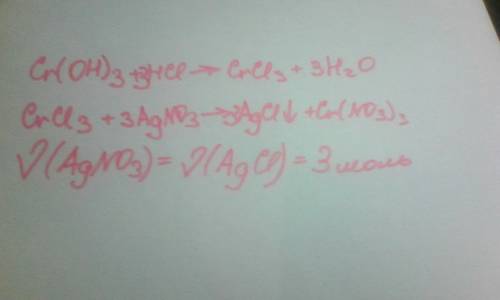 Cr(OH)3 + 3HCl → CrCl3 + 3H2O
CrCl3 + 3AgNO3 → 3AgCl↓ + Cr(NO3)3
ν(AgNO3) = ν(AgCl) = 3 моль